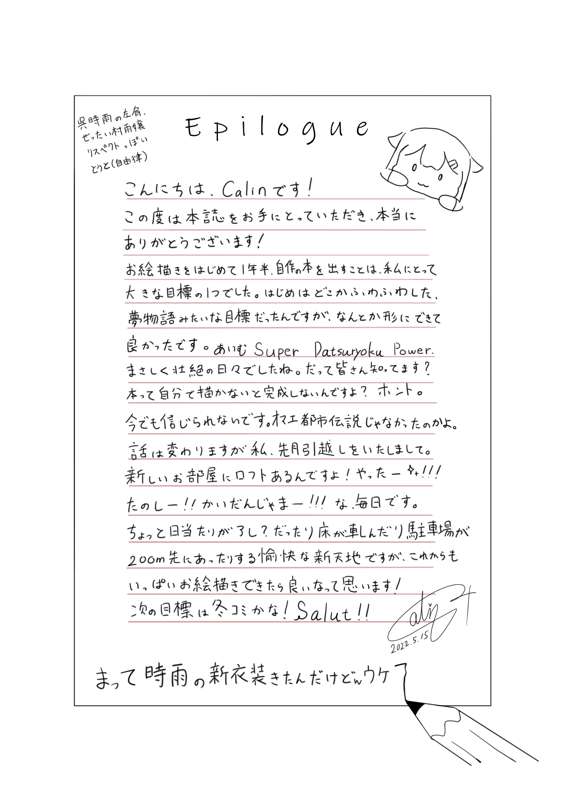 呉時雨の左肩、
ぜったい村雨嬢
リスペクトっぽい
とりと(自由律)
Epilogue
こんにちは、Calinです!
この度は本誌をお手にとっていただき、本当に
ありがとうございます!
お絵描きをはじめて1年半、自作の本を出すことは、私にとって
大きな目標の1つでした。はじめはどこかふわふわした、
夢物語みたいな目標だったんですが、なんとか形にできて
良かったです。あいむ Super Datsuryoku Power.
まさしく壮絶の日々でしたね。だって皆さん知ってます?
本って自分で描かないと完成しないんですよ? ホント。
今でも信じられないです。オマエ都市伝説じゃなかったのかよ。
話は変わりますが私、先月引越しをいたしまして。
新しいお部屋にロフトあるんですよ!やったー!!!
たのしー!!かいだんじゃまー!!!な、毎日です。
ちょっと日当たりが了し?だったり床が軋んだり駐車場が
200m先にあったりする愉快な新天地ですが、これからも
いっぱいお絵描きできたら良いなって思います!
次の目標は冬コミかな!Salut!!
Calin
2022.5.15
まって時雨の新衣装きたんだけどんウケ